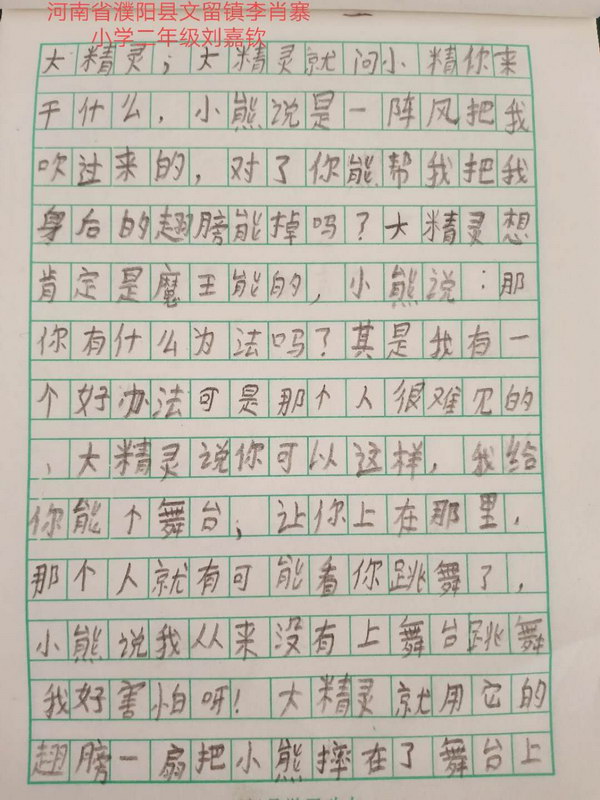 河南省濮阳县文留镇李肖寨
小学二年级刘嘉钦
大精灵；大精灵就问小精你来
干什么，小熊说是一阵风把我
吹过来的，对了你能帮我把我
身后的翅膀能掉吗？大精灵想
肯定是魔王能的，小熊说：那
你有什么为法吗？其是我有一
个好办法可是那个人很难见的
，大精灵说你可以这样，我给
你能个舞台；让你上在那里，
那个人就有可能看你跳舞了，
小熊说我从来没有上舞台跳舞
我好害怕呀！大精灵就用它的
翅膀一扇把小熊摔在了舞台上